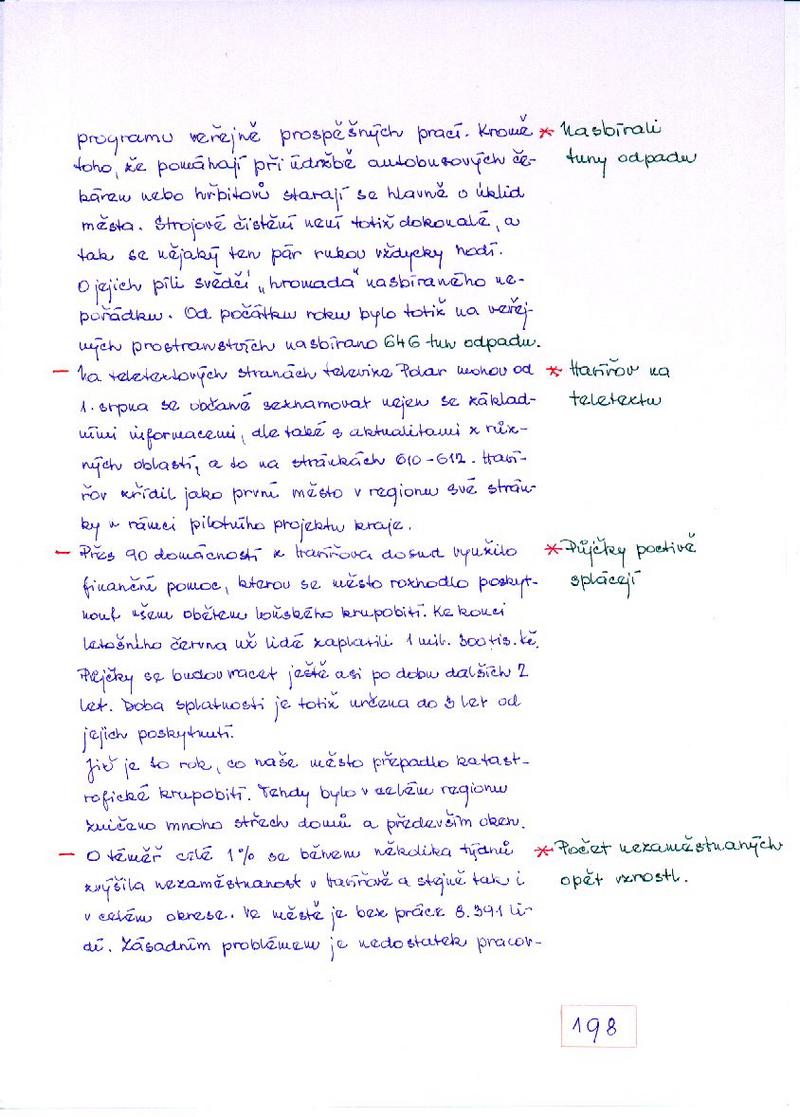 programu veřejně prospěšných prací. Kromě * Nasbírali
toho, že pomáhají při údržbě autobusových če- tuny odpadu
káren nebo hřbitovů starají se hlavně o úklid
města. Strojové čištění není totiž dokonalé, a
tak se nějaký ten pár rukou vždycky hodí.
O jejich píli svědčí „hromada" nasbíraného ne-
pořádku. Od počátku roku bylo totiž na veřej-
ných prostranstvích nasbíráno 646 tun odpadu.
– Na teletextových stranách televize Polar mohou od * Havířov na
1. srpna se občané seznamovat nejen se základ- teletextu
ními informacemi, ale také s aktualitami z růz-
ných oblastí, a to na stránkách 610-612. Haví-
řov zřídil jako první město v regionu své strán-
ky v rámci pilotního projektu kraje.
– Přes 90 domácností z Havířova dosud využilo * Půjčky poctivě
finanční pomoc, kterou se město rozhodlo poskyt- splácejí
nout všem obětem loňského krupobití. Ke konci
letošního června už lidé zaplatili 1 mil. 300 tis. kč.
Půjčky se budou vracet ještě asi po dobu dalších 2
let. Doba splatnosti je totiž určena do 3 let od
jejich poskytnutí.
Již je to rok, co naše město přepadlo katast-
rofické krupobití. Tehdy bylo v celém regionu
zničeno mnoho střech domů a především oken.
– O téměř celé 1% se během několika týdnů * Počet nezaměstnaných
zvýšila nezaměstnanost v Havířově a stejně tak i opět vzrostl.
v celém okrese. Ve městě je bez práce 8.391 li-
dí. Zásadním problémem je nedostatek pracov-
198